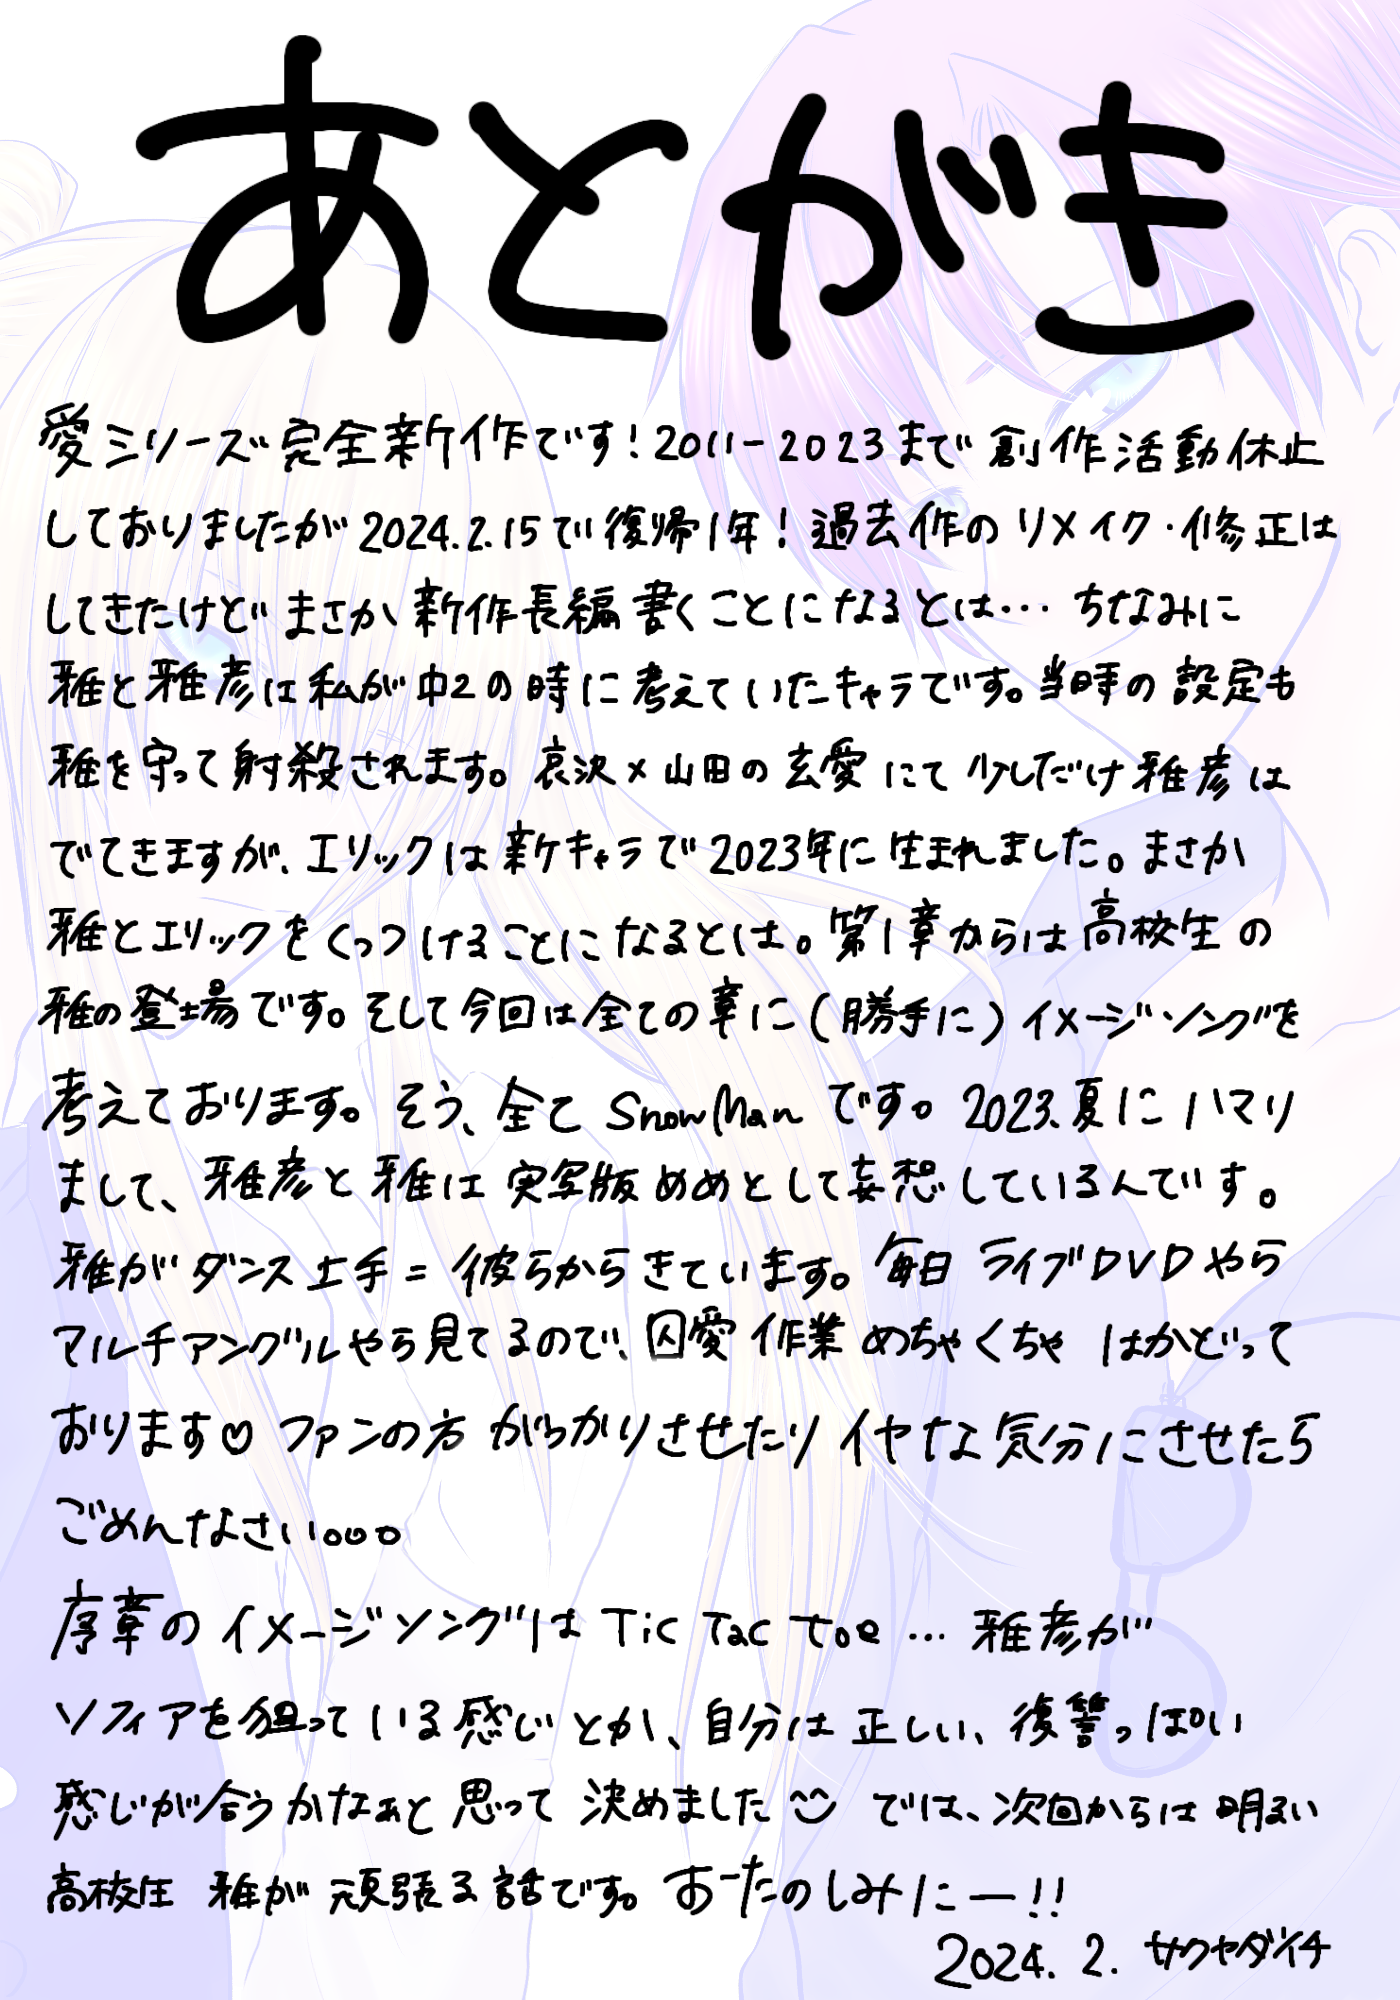 あとがき
愛シリーズ完全新作です!2011-2023まで創作活動休止
しておりましたが2024.2.15で復帰1年!過去作のリメイク・修正は
してきたけどまさか新作長編書くことになるとは…ちなみに
雅と雅彦は私が中2の時に考えていたキャラです。当時の設定も
雅を守って射殺されます。哀沢×山田の玄愛にて少しだけ雅彦は
でてきますが、エリックは新キャラで2023年に生まれました。まさか
雅とエリックをくっつけることになるとは。第1章からは高校生の
雅の登場です。そして今回は全ての章に(勝手に)イメージソングを
考えております。そう、全てSnowManです。2023.夏にハマり
まして、雅彦と雅は実写版めめとして妄想しているんです。
雅がダンス上手=彼らからきています。毎日ライブDVDやら
マルチアングルやら見てるので、囚愛作業めちゃくちゃはかどって
おります♡ファンの方がっかりさせたりイヤな気分にさせたら
ごめんなさい。。。
序章のイメージソングはTic Tac toe…雅彦が
ソフィアを狙っている感じとか、自分は正しい、復讐っぽい
感じが合うかなぁと思って決めました^^では、次回からは明るい
高校生 雅が頑張る話です。おーたのしみにー!!
2024.2.サクヤダイチ